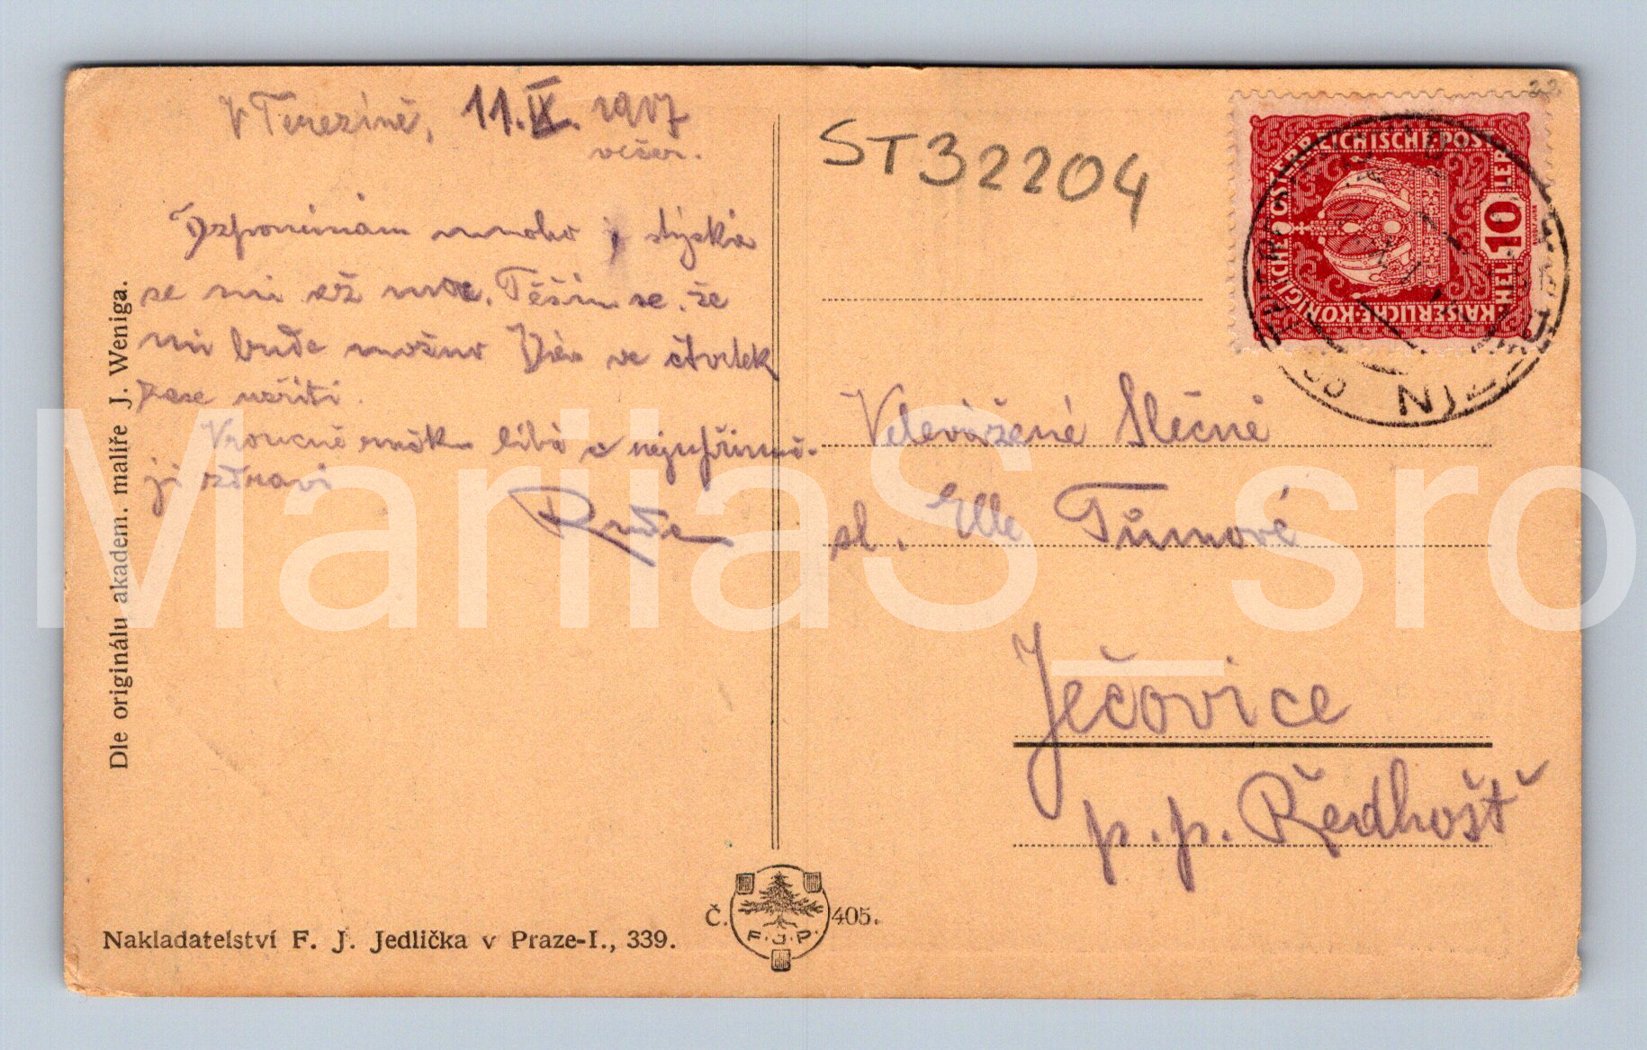 V Terezíně, 11.IX. 1917
večer.
ST32204
Vzpomínám mnoho, stýská
se mi už moc. Těším se, že
mi bude možno Vás ve čtvrtek
zase uzříti.
Vroucně ručku líbá a nejupřímně-
ji zdraví
KAISERLICHE KÖNIGLICHE ÖSTERREICHISCHE POST
10
HELLER
Velevážené Slečně
sl. Elle Tůmové
Ječovice
p. p. Ředhošť
Dle originálu akadem. malíře J. Weniga.
Nakladatelství F. J. Jedlička v Praze-I., 339.
Č. 405.
F. J. P.
MariiaS_sro